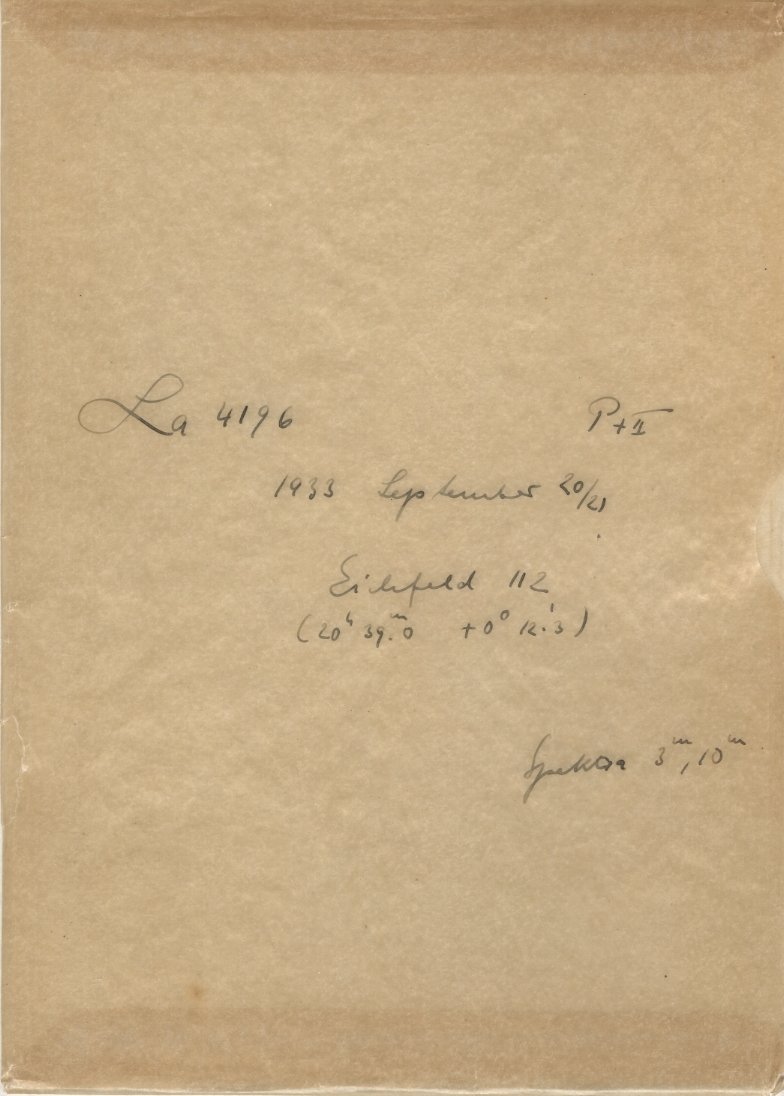 La 4196 P+II
1933 September 20/21
Eichfeld 112
(20ʰ 39ᵐ.0 +0° 12'.3)
Spektra 3ᵐ, 10ᵐ